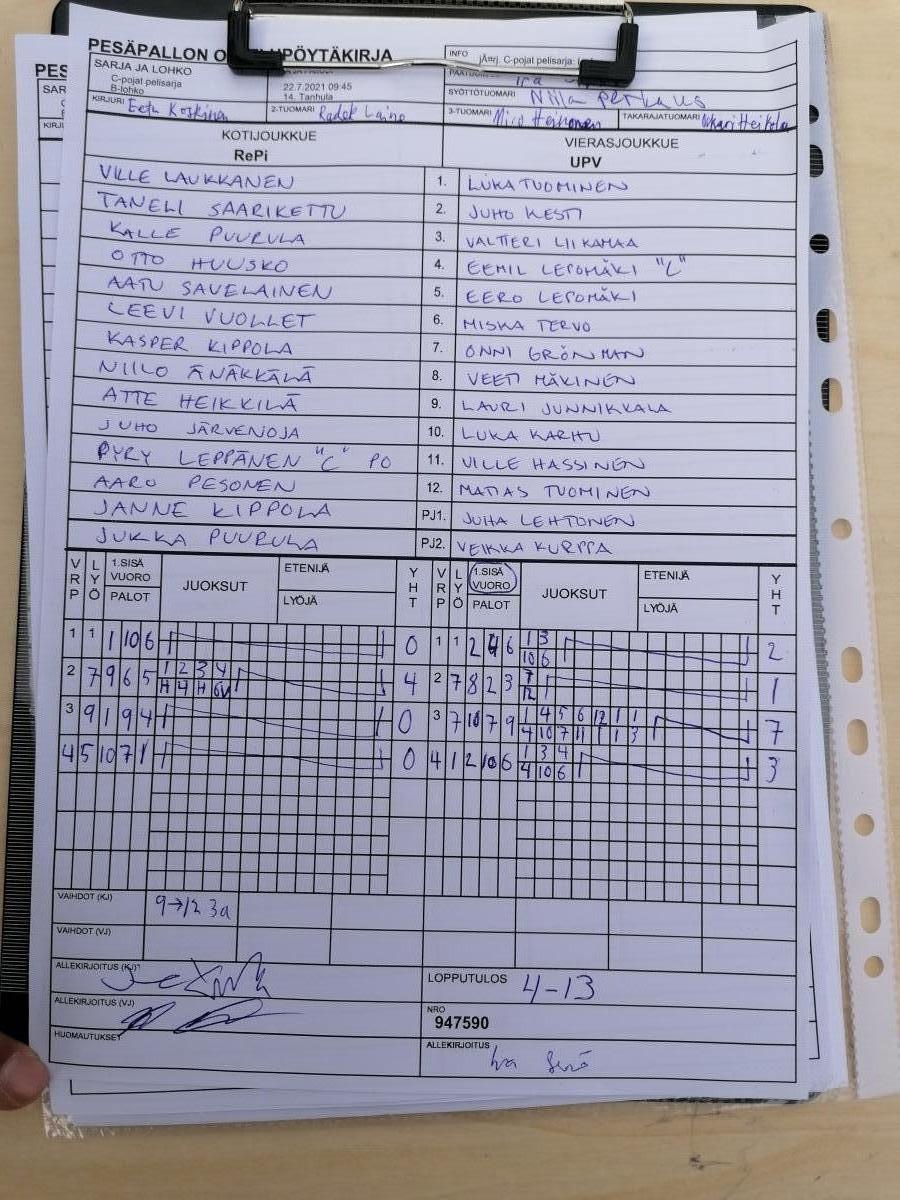 PESÄPALLON O PÖYTÄKIRJA
SARJA JA LOHKO
C-pojat pelisarja
B-lohko
22.7.2021 09:45
14. Tanhula
INFO
C-pojat pelisarja:
SYÖTTÖTUOMARI Niila
KIRJURI Eetu Koskinen
2-TUOMARI Radek Laine
3-TUOMARI Mico Heinonen
TAKARAJATUOMARI
KOTIJOUKKUE
RePi
VIERASJOUKKUE
UPV
VILLE LAUKKANEN 1. LUKA TUOMINEN
TANELI SAARIKETTU 2. JUHO KESTI
KALLE PUURULA 3. VALTTERI LIIKAMAA
OTTO HUUSKO 4. EEMIL LEPOMÄKI "C"
AATU SAVELAINEN 5. EERO LEPOMÄKI
LEEVI VUOLLET 6. MISKA TERVO
KASPER KIPPOLA 7. ONNI GRÖNMAN
NIILO ÄNÄKKÄLÄ 8. VEETI MÄKINEN
ATTE HEIKKILÄ 9. LAURI JUNNIKKALA
JUHO JÄRVENOJA 10. LUKA KARHU
PYRY LEPPÄNEN "C" PO 11. VILLE HASSINEN
AARO PESONEN 12. MATIAS TUOMINEN
JANNE KIPPOLA PJ1. JUHA LEHTONEN
JUKKA PUURULA PJ2. VEIKKA KURPPA
VRP LYÖ 1.SISÄ VUORO PALOT JUOKSUT ETENIJÄ LYÖJÄ YHT VRP LYÖ 1.SISÄ VUORO PALOT JUOKSUT ETENIJÄ LYÖJÄ YHT
1 1 1 10 6 0 1 1 2 4 6 1 3 2
10 6
2 7 9 6 5 1 2 3 4 4 2 7 8 2 3 7 1
H 4 H 6V 12
3 9 1 9 4 0 3 7 10 7 9 1 4 5 6 12 1 1 7
4 10 7 11 1 1 3
4 5 10 7 1 0 4 1 2 10 6 1 3 4 3
4 10 6
VAIHDOT (KJ) 9→12 3a
VAIHDOT (VJ)
ALLEKIRJOITUS (KJ)
LOPPUTULOS 4-13
ALLEKIRJOITUS (VJ)
NRO
947590
HUOMAUTUKSET
ALLEKIRJOITUS